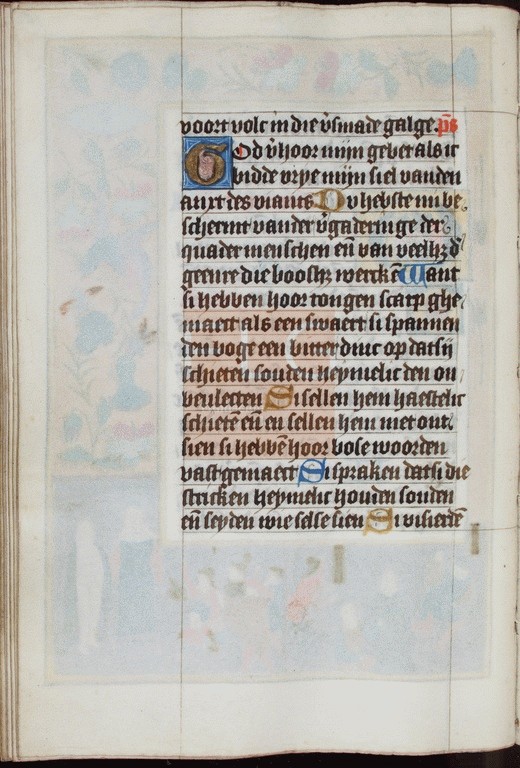 voort volc in die v̄smade galge. p̄s
God v̄hoor mijn gebet als ic
bidde vrye mijn siel van den
anxt des viants Du hebste mi be
schermt van der v̄gaderinge der
quader menschen en̄ van veelhz d̄
geenre die booshz wercken̄ Want
si hebben hoor tongen scarp ghe
maect als een swaert si spannen
den boge een bitter dinc op dat sij
schieten souden heymelic den on
bevlecten Si sellen hem haestelic
schietē en̄ en sellen hem niet ont
sien si hebbē hoor bose woorden
vast gemaect Si spraken dat si die
stricken heymelic houden souden
en̄ seyden wie selse sien Si visierdē